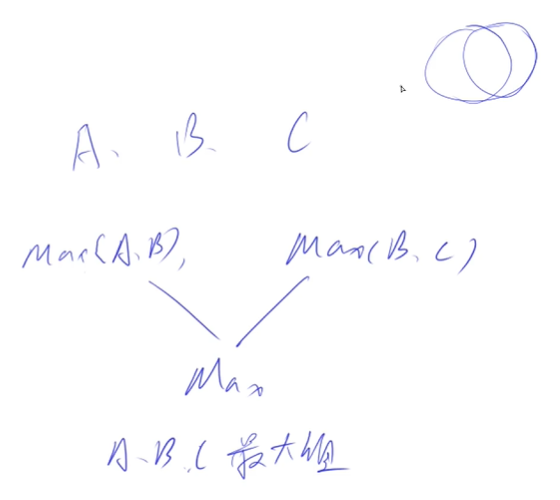 A、 B、 C
Max(A、B), Max(B、C)
Max
A、B、C 最大值